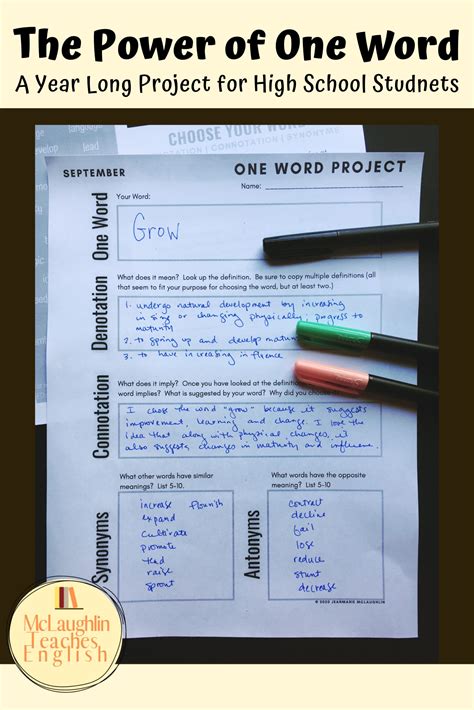 The Power of One Word
A Year Long Project for High School Studnets
language
develop
lead
CHOOSE YOUR WORD
| CONNOTATION | SYNONYMS
SEPTEMBER
ONE WORD PROJECT
Name:
One Word
Your Word:
Grow
Denotation
What does it mean? Look up the definition. Be sure to copy multiple definitions (all
that seem to fit your purpose for choosing the word, but at least two.)
1. undergo natural development by increasing
in size or changing physically; progress to
maturity
2. to spring up and develop matur
3. to have increasing influence
Connotation
What does it imply? Once you have looked at the definition
word implies? What is suggested by your word? Why did you choose
I chose the word "grow" because it suggests
improvement, learning and change. I love the
idea that along with physical changes, it
also suggests changes in maturity and influence.
Synonyms
What other words have similar
meanings? List 5-10.
increase flourish
expand
cultivate
promote
lead
raise
sprout
Antonyms
What words have the opposite
meaning? List 5-10.
contract
decline
fail
lose
reduce
stunt
decrease
© 2020 JEANMARIE MCLAUGHLIN
McLaughlin
Teaches
English